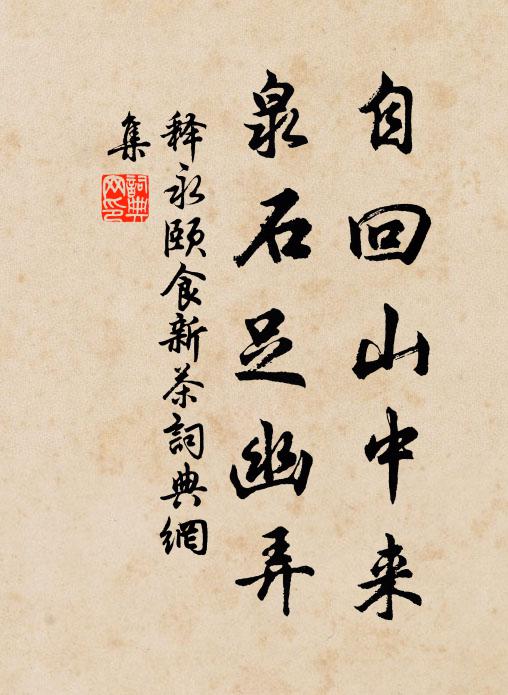 自回山中来
泉石足幽弄
释永颐食新茶詞典網
集
詞典
网印